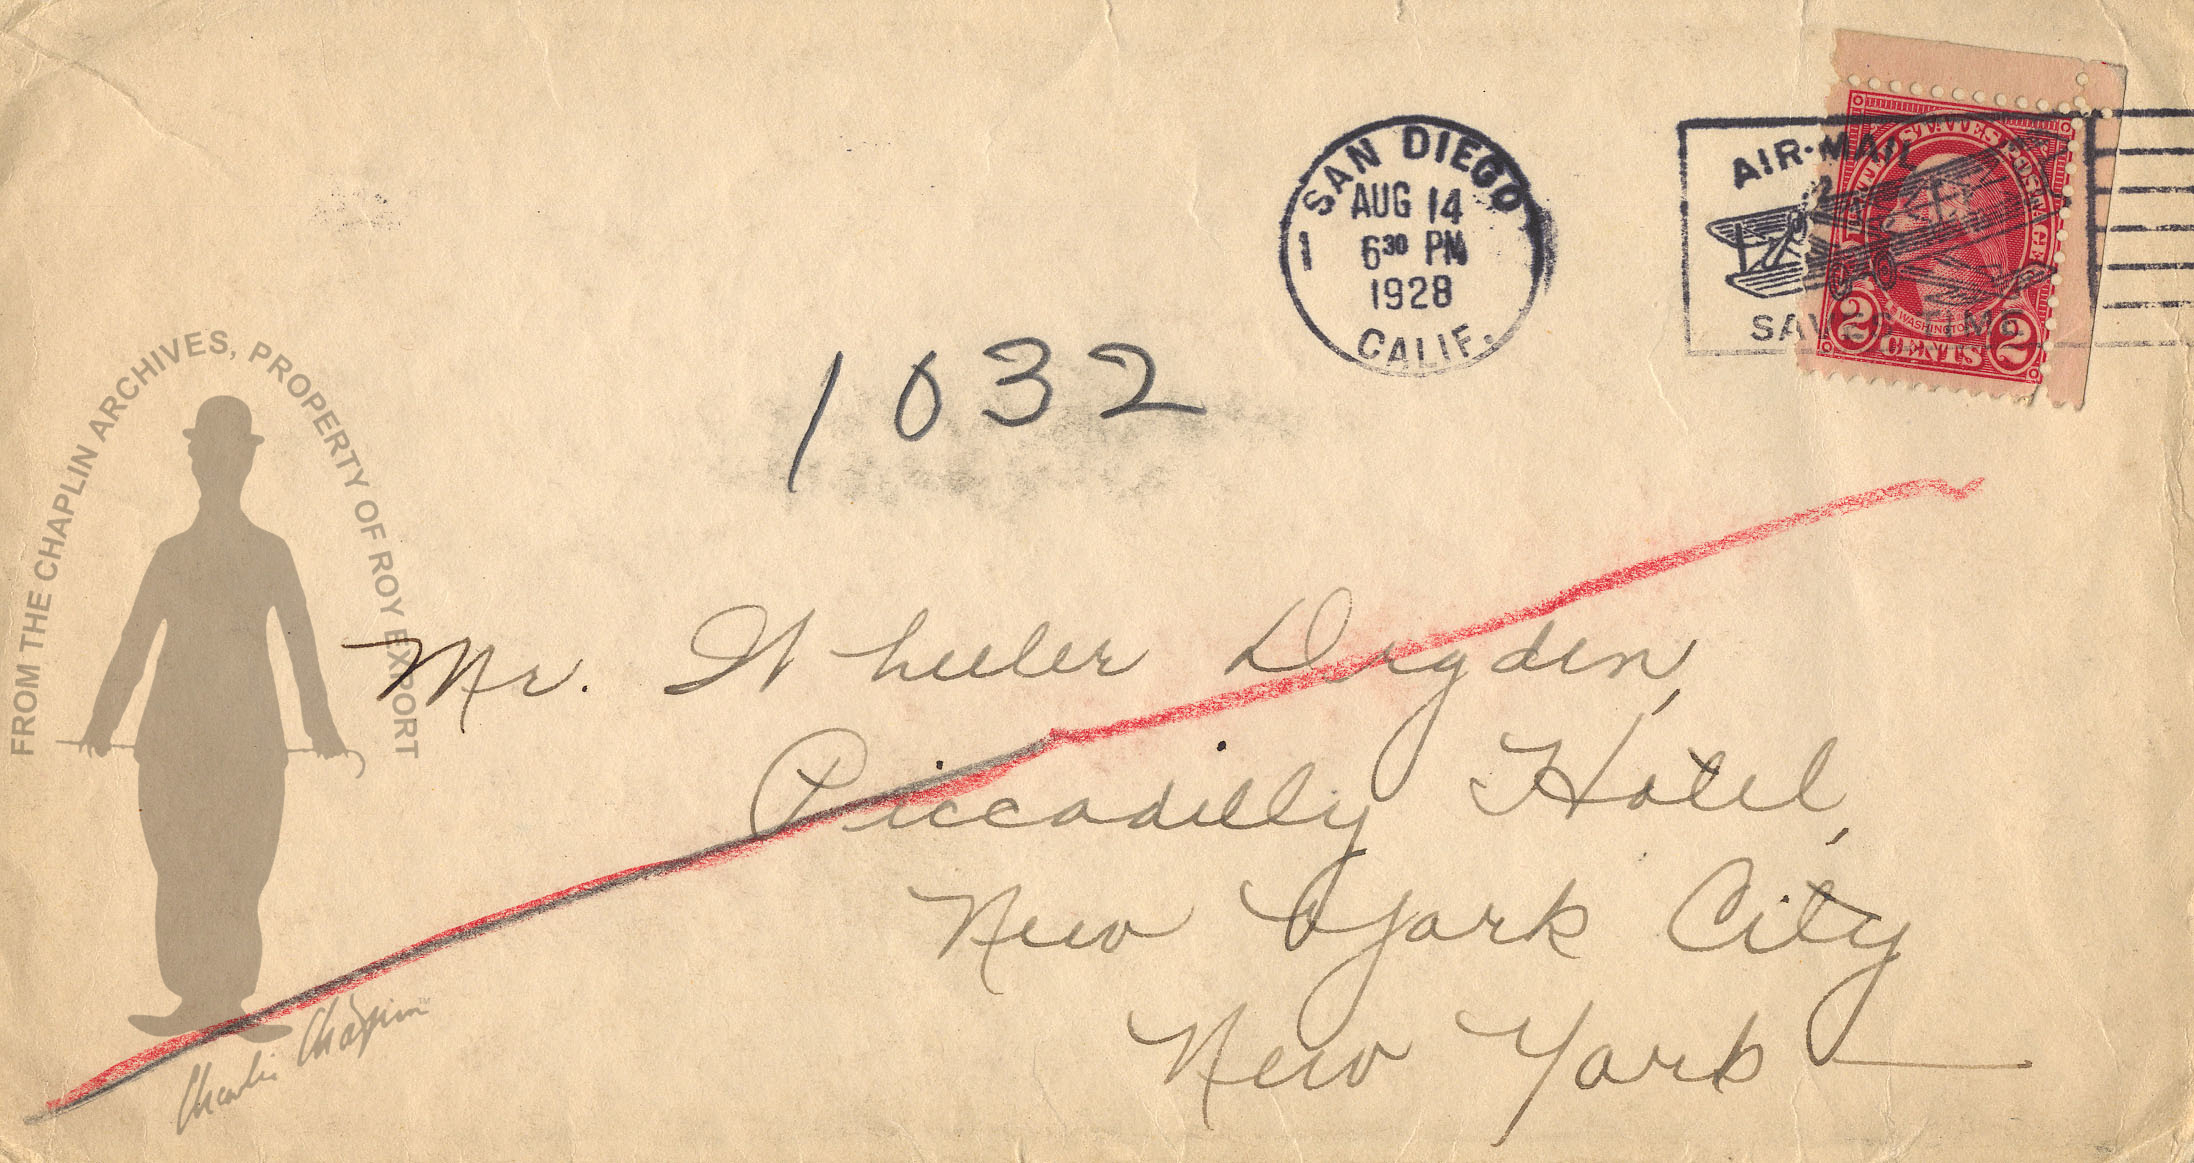 SAN DIEGO
1
AUG 14
6³⁰ PM
1928
CALIF.
AIR-MAIL
SAVES TIME
WASHINGTON
2 CENTS 2
1032
FROM THE CHAPLIN ARCHIVES, PROPERTY OF ROY EXPORT
Mr. Wheeler Dryden,
Piccadilly Hotel,
New York City
New York
Charlie Chaplin